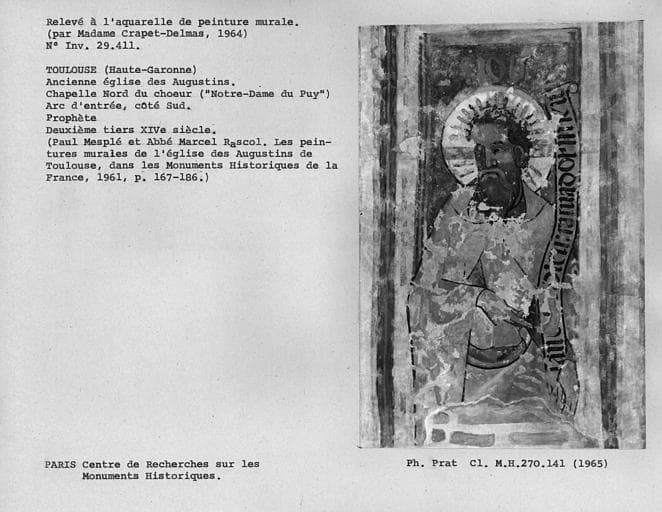 Relevé à l'aquarelle de peinture murale.
(par Madame Crapet-Delmas, 1964)
N° Inv. 29.411.
TOULOUSE (Haute-Garonne)
Ancienne église des Augustins.
Chapelle Nord du choeur ("Notre-Dame du Puy")
Arc d'entrée, côté Sud.
Prophète
Deuxième tiers XIVe siècle.
(Paul Mesplé et Abbé Marcel Rascol. Les pein-
tures murales de l'église des Augustins de
Toulouse, dans les Monuments Historiques de la
France, 1961, p. 167-186.)
PARIS Centre de Recherches sur les
Monuments Historiques.
Ph. Prat Cl. M.H.270.141 (1965)